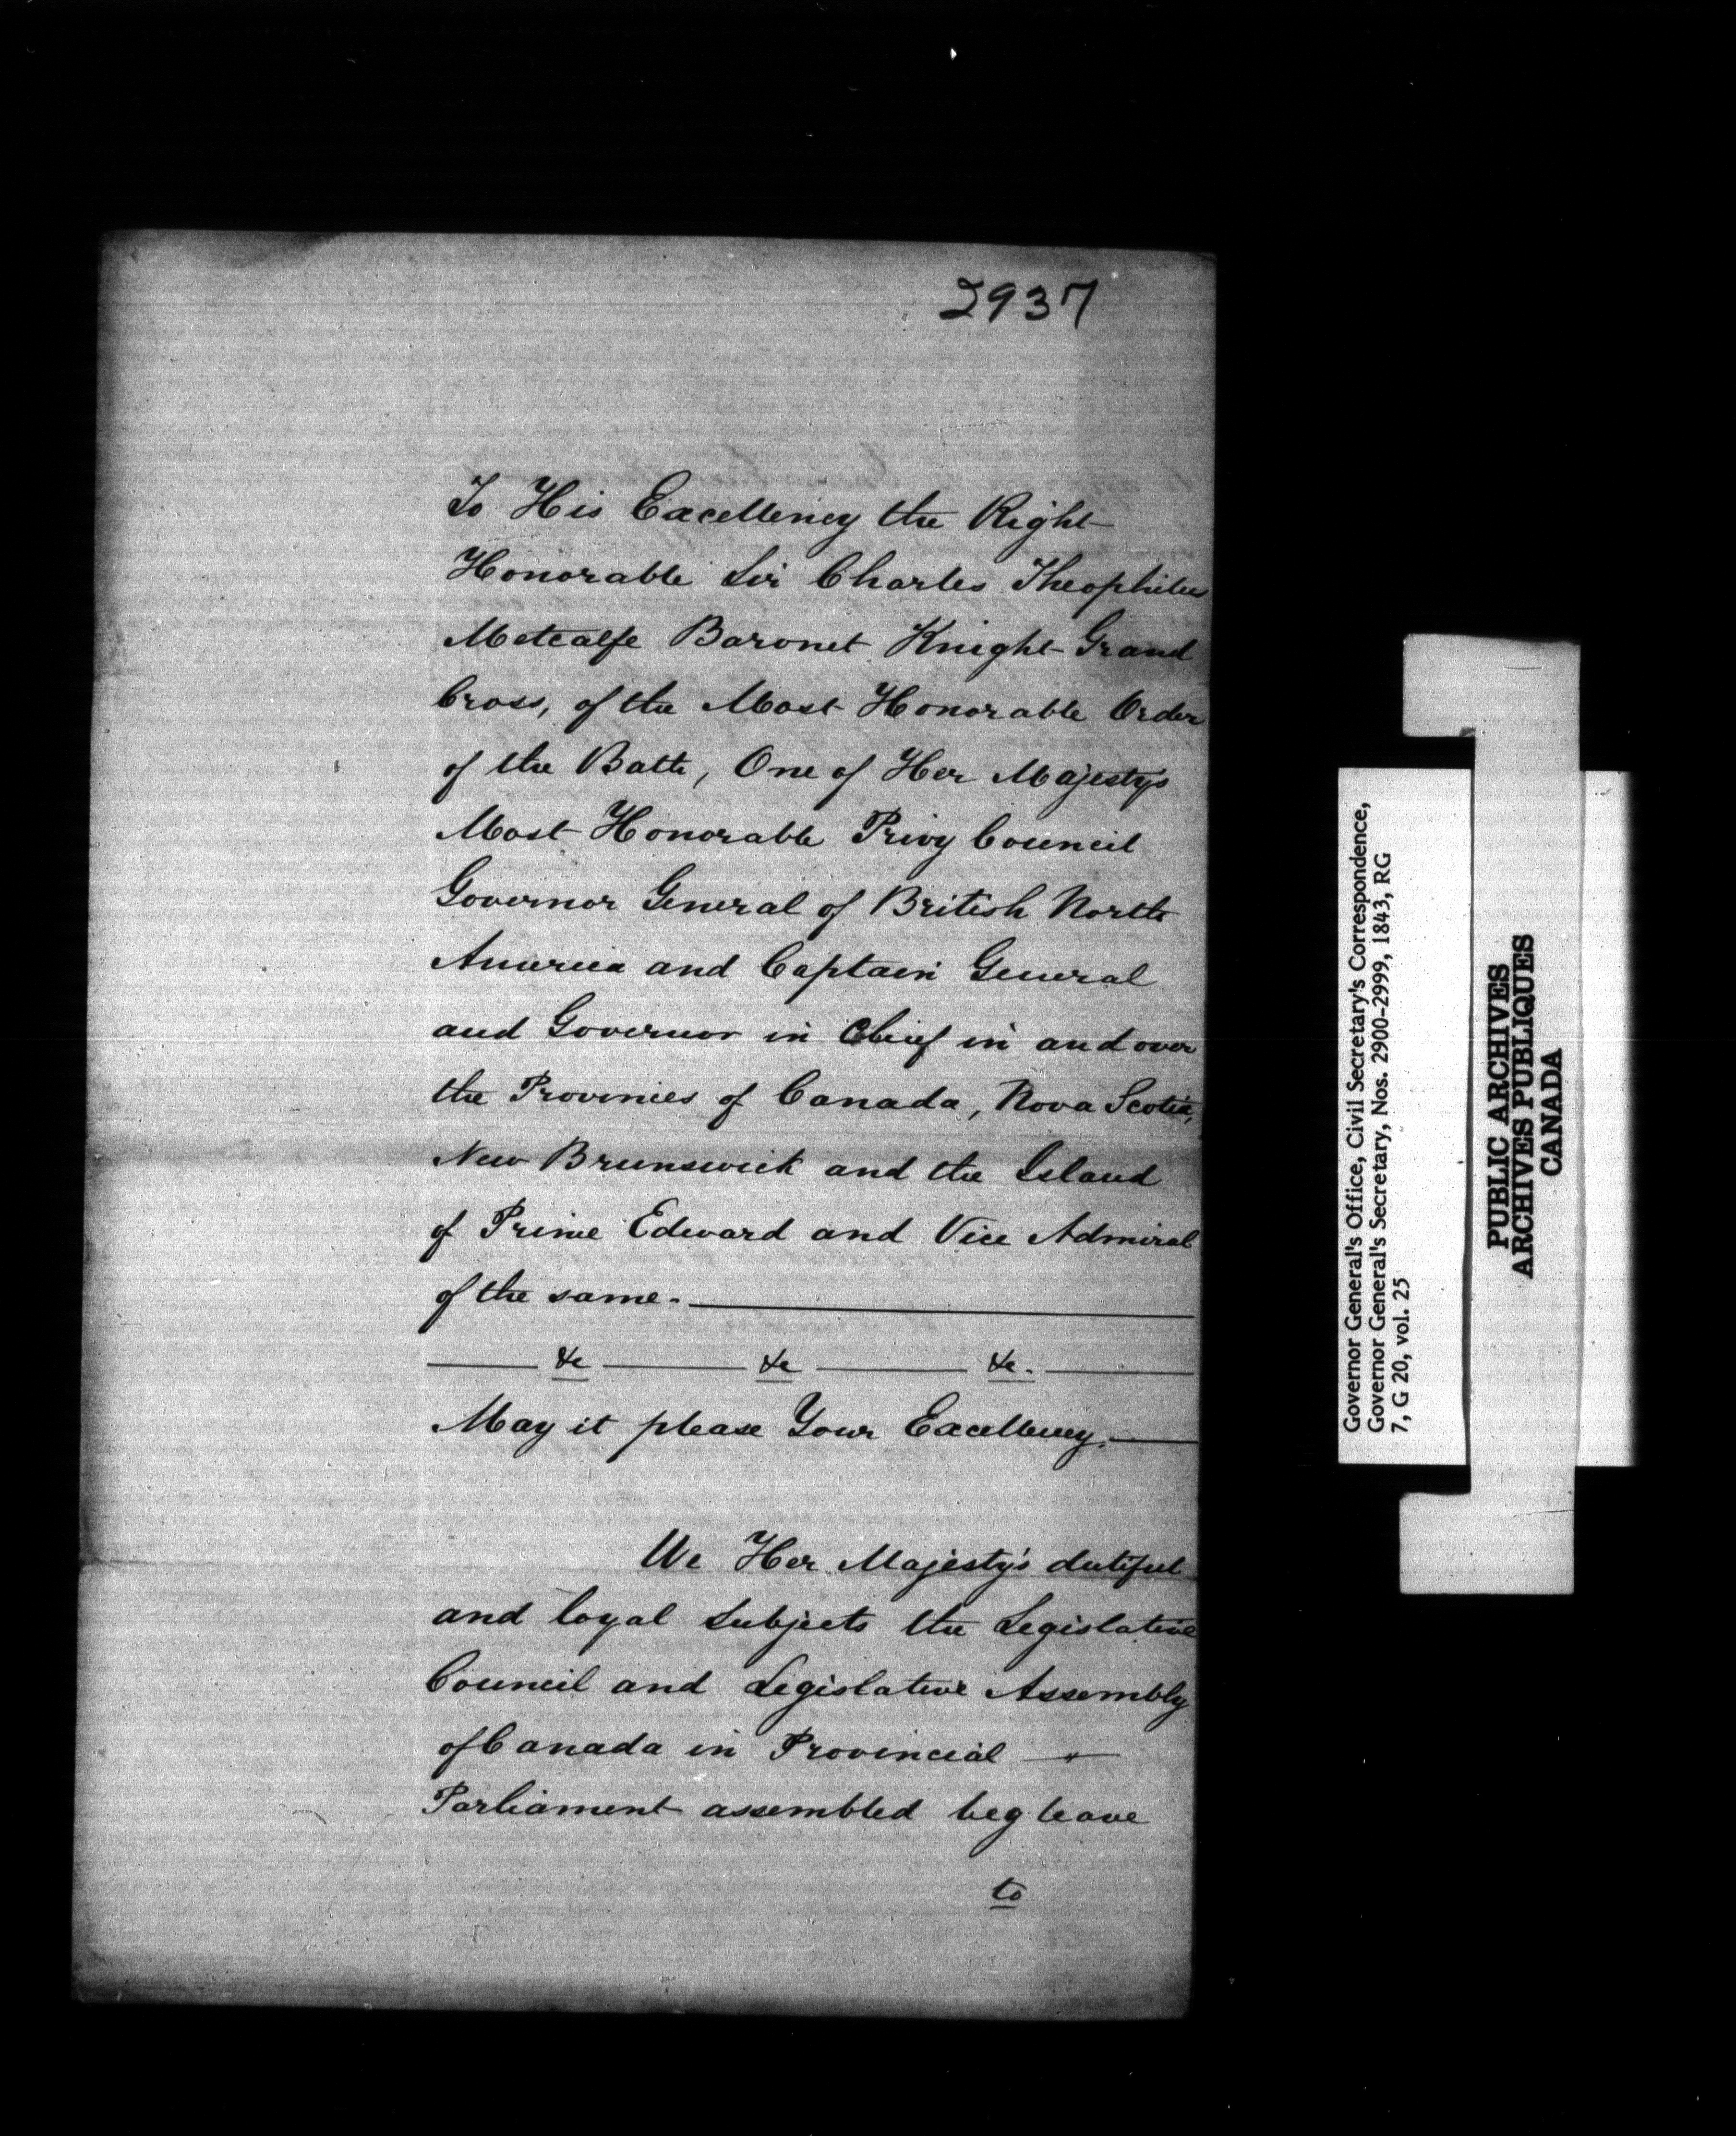 2937
To His Excellency the Right
Honorable Sir Charles Theophilus
Metcalfe Baronet Knight Grand
Cross, of the Most Honorable Order
of the Bath, One of Her Majesty's
Most Honorable Privy Council
Governor General of British North
America and Captain General
and Governor in Chief in and over
the Provinces of Canada, Nova Scotia,
New Brunswick and the Island
of Prince Edward and Vice Admiral
of the same.
&c &c &c.
May it please Your Excellency.
We Her Majesty's dutiful
and loyal Subjects the Legislative
Council and Legislative Assembly
of Canada in Provincial
Parliament assembled beg leave
to
Governor General's Office, Civil Secretary's Correspondence,
Governor General's Secretary, Nos. 2900-2999, 1843, RG
7, G 20, vol. 25
PUBLIC ARCHIVES
ARCHIVES PUBLIQUES
CANADA